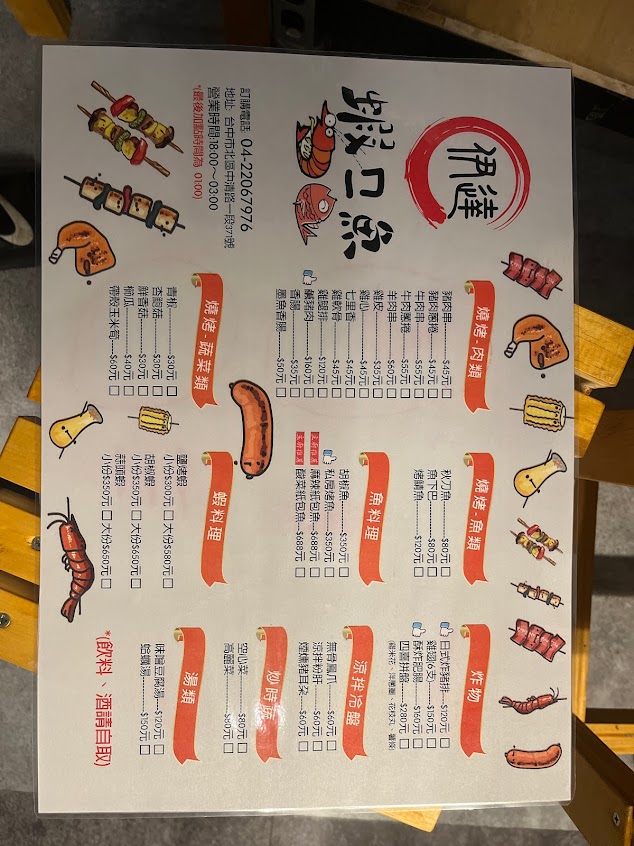 伊達
蝦口魚
訂購電話 04-22067976
地址: 台中市北區中清路一段371號
營業時間:18:00~03:00
*(最後加點時間為 01:00)
燒烤-肉類
豬肉串$45元
豬肉蔥捲$45元
牛肉串$55元
牛肉蔥捲$55元
羊肉串$60元
雞皮$35元
雞心$45元
七里香$45元
雞軟骨$45元
雞腿排$120元
鹹豬肉$160元
香腸$35元
墨魚香腸$50元
燒烤-蔬菜類
青椒$30元
杏鮑菇$30元
鮮香菇$30元
櫛瓜$40元
帶殼玉米筍$60元
燒烤-魚類
秋刀魚$80元
魚下巴$80元
烤鯖魚$120元
魚料理
胡椒魚$350元
私房烤魚$350元
麻辣紙包魚$688元
酸菜紙包魚$688元
蝦料理
鹽烤蝦
小份$300元 大份$580元
胡椒蝦
小份$350元 大份$650元
蒜頭蝦
小份$350元 大份$650元
炸物
日式炸豬排$120元
雞翅(6支)$150元
酥炸肥腸$160元
四喜拼盤$280元
涼拌冷盤
無骨鳳爪$60元
涼拌粉肝$60元
煙燻豬耳朵$60元
炒時蔬
空心菜$80元
高麗菜$80元
湯類
味噌豆腐湯$120元
蛤蠣湯$150元
*(飲料、酒請自取)